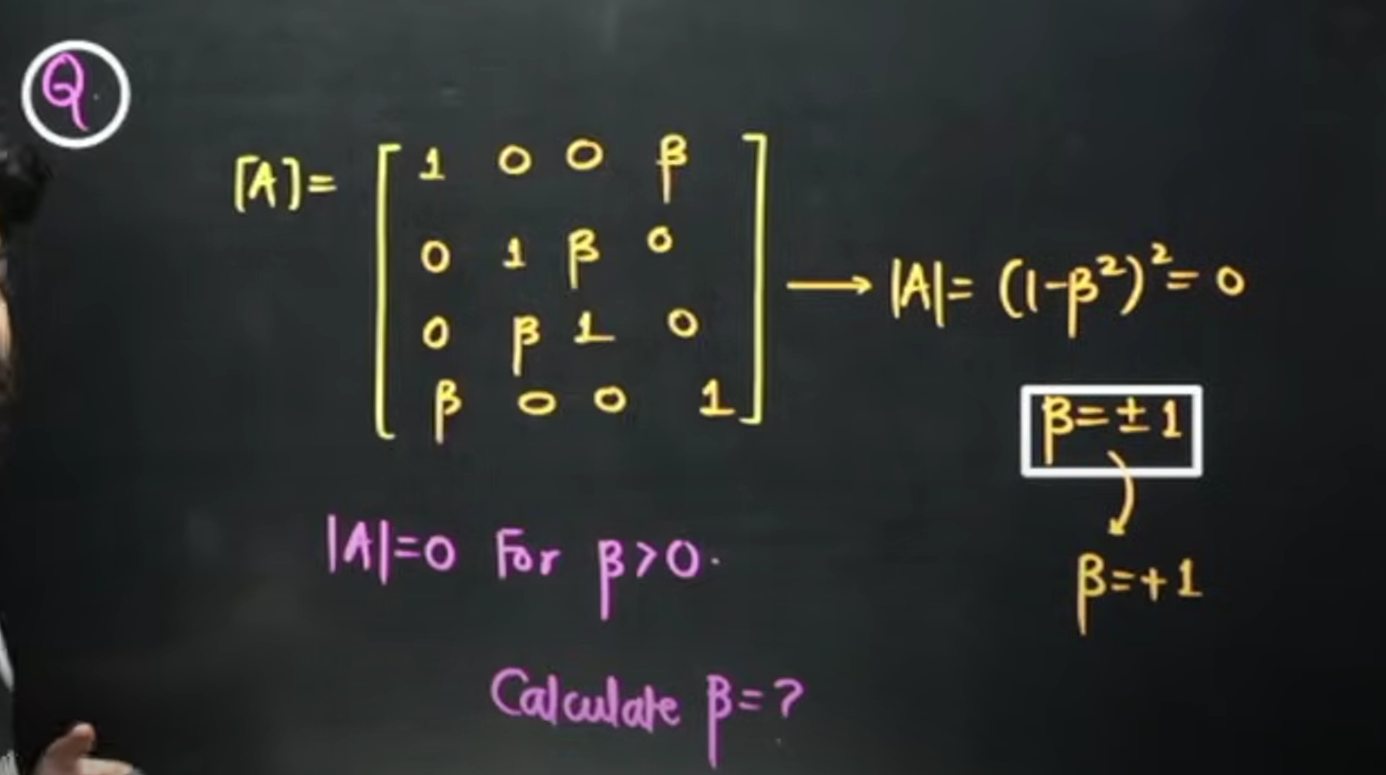 Q.
[A]= [ 1 0 0 β
0 1 β 0
0 β 1 0
β 0 0 1 ] → |A|= (1-β²)²= 0
β=±1
β=+1
|A|=0 For β>0.
Calculate β=?